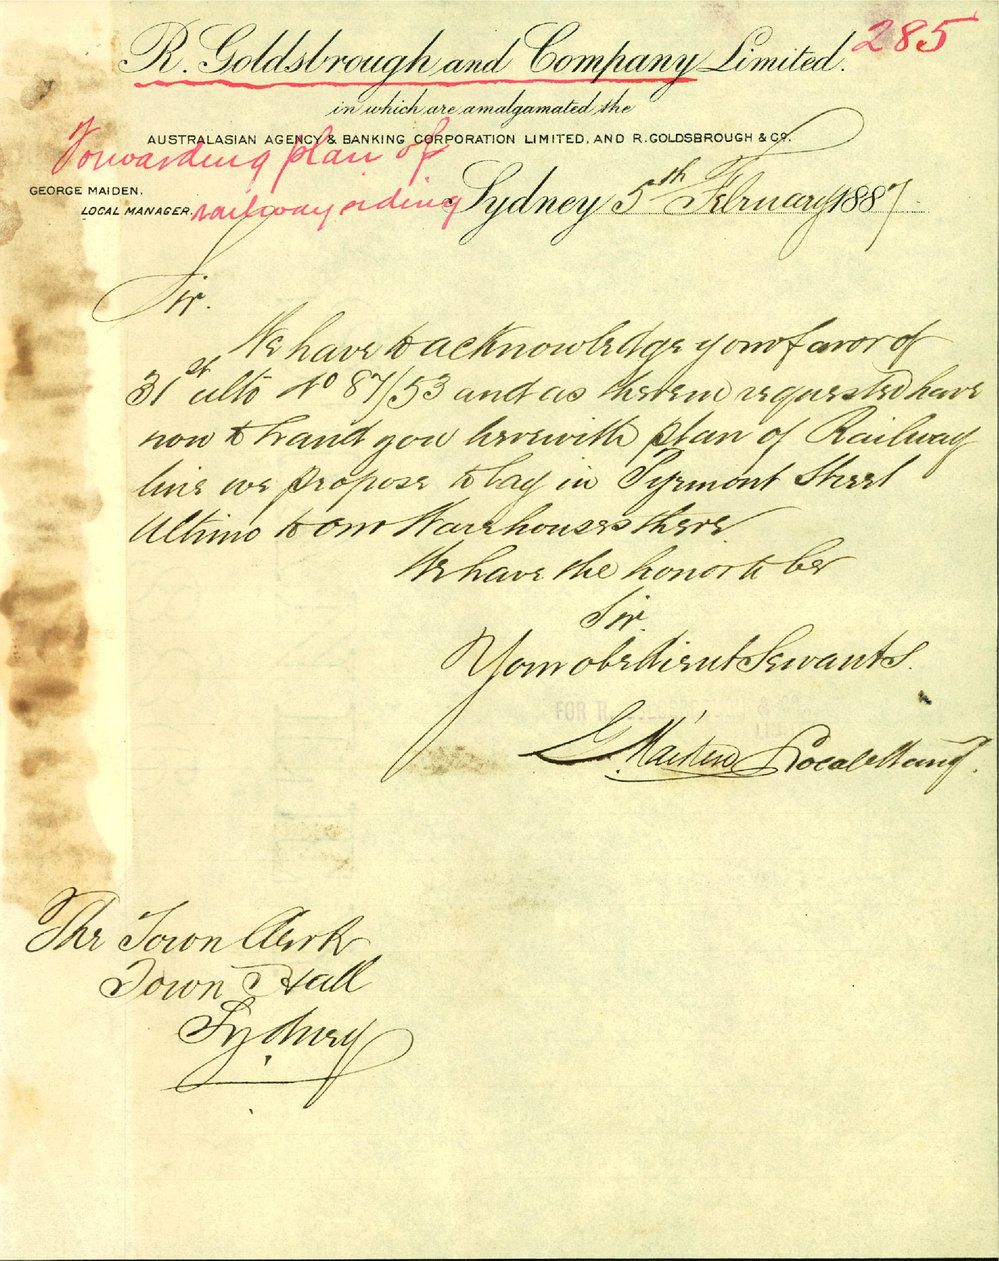 285
R. Goldsbrough and Company Limited.
in which are amalgamated the
AUSTRALASIAN AGENCY & BANKING CORPORATION LIMITED, AND R. GOLDSBROUGH & CO.
Forwarding plan of
railway siding
GEORGE MAIDEN.
LOCAL MANAGER.
Sydney 5th February 1887
Sir.
We have to acknowledge your favor of
31st ulto No 87/53 and as therein requested have
now to hand you herewith plan of Railway
line we propose to lay in Pyrmont Street
Ultimo to our Warehouses there
We have the honor to be
Sir.
Your obedient Servants.
FOR R.
G. Maiden Local Mang.
The Town Clerk
Town Hall
Sydney